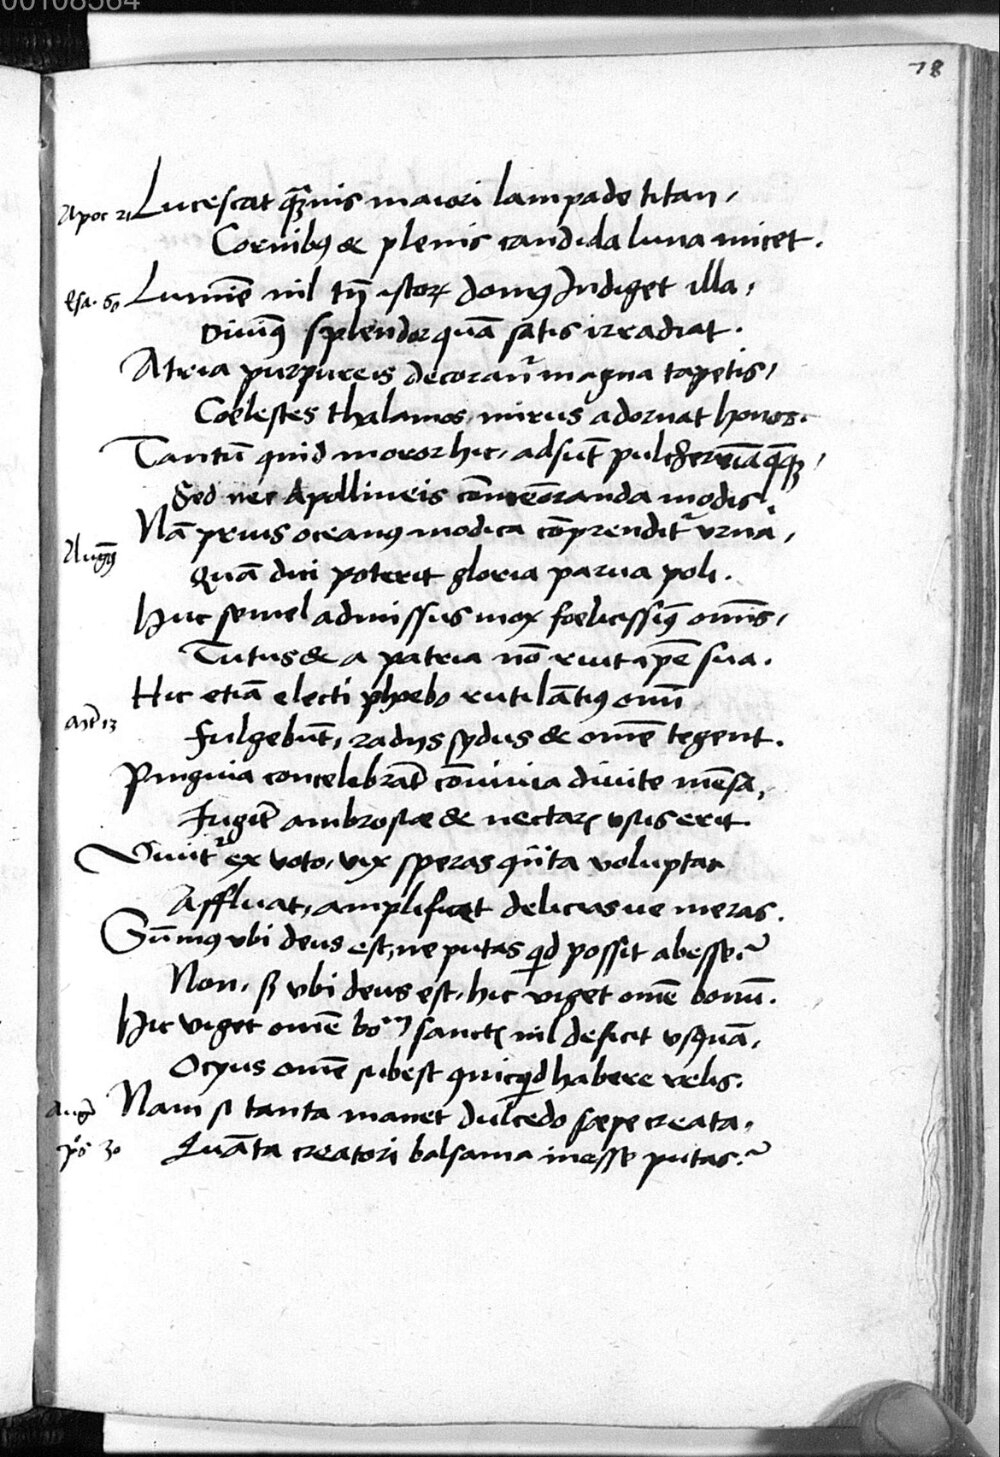 00108564
78
Apoc 21 Lucescat quāuis maiori lampade titan,
Cornibꝰ & plenis candida luna micet.
Esa. 60 Lumīe nil tn̄ istoꝝ domꝰ Indiget illa,
Diuinꝰ splendor quā satis irradiat.
Atria purpureis decoranˀ magna tapetis,
Coelestes thalamos mirus adornat honos.
Tantū quid moror hic, adsūt pulcherria
Sed nec Apollineis cōmemoranda modis.
Nā prius oceanꝰ modica cōprenditˀ vrna,
Augꝰ
Quā dici poterit gloria parua poli.
Huc semel admissus mox foelicissimꝰ om̄is,
Tutus & a patria nō ruit ipse sua.
Hic etiā electi phoebo rutilātiꝰ omni
Mt 13
Fulgebūt, radijs sydus & om̄e tegent.
Pinguia concelebrāt cōuiuia diuite mēsa,
Iugit ambrosiæ & nectarꝭ vsus erit.
Viuitˀ ex voto, vix speras quāta voluptas
Affluat, amplificet delicias ue meras.
Sūmus vbi deus est, ne putas qd possit abesse?
Non, sꝫ vbi deus est, hic viget om̄e bonū.
Hic viget om̄e bom̄ sanctꝭ nil deficit vsquā,
Ocyus om̄e subest quicqd habere velis.
Aug Nam si tanta manet dulcedo sæpe creata,
ps 30 Quāta creatori balsama inesse putas?